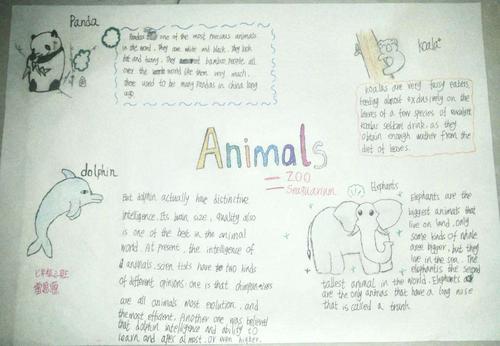 Panda
Pandas is one of the most precious animals
in the word. They are white and black. They look
fat and funny. They eat bamboo. People all
over the world like them very much.
there used to be many Pandas in China long
ago.
koala
koalas are very fussy eaters,
feeding almost exclusively on the
leaves of a few species of
koalas seldom drink, as they
obtain enough wather from the
diet of leaves.
Animals
ZOO
Seaquarium
dolphin
But dolphin actually have distinctive
intelligence. Its brain size, quality also
is one of the best in the animal
world. At present, the intelligence of
animals, scien tists have two kinds
of different opinions: one is that chimpanzees
are all animals most evolution, and
the most efficient. Another one was believed
that dolphin intelligence and ability to
learn and apes almost, or even higher.
Elephants
Elephants are the
biggest animals that
live on land. only
some kinds of whale
are bigger, but they
live in the sea. The
elephantis the second
tallest animal in the world. Elephants
are the only animas that have a long nose
that is called a trunk.